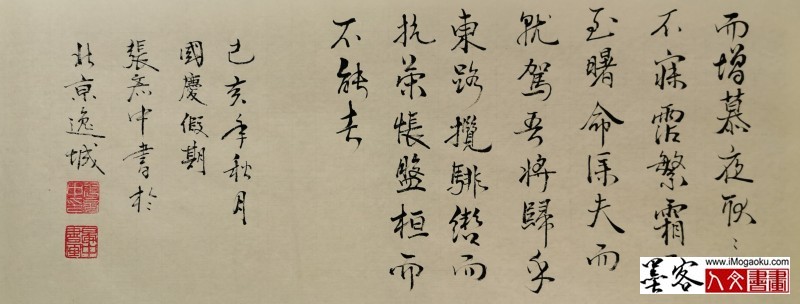 而增慕夜耿〻
不寐霑繁霜
至曙命僕夫而
就駕吾將歸乎
東路攬騑轡而
抗策悵盤桓而
不能去
己亥年秋月
國慶假期
張彥中書於
北京逸城
墨客
www.iMogaoku.com
人文書畫